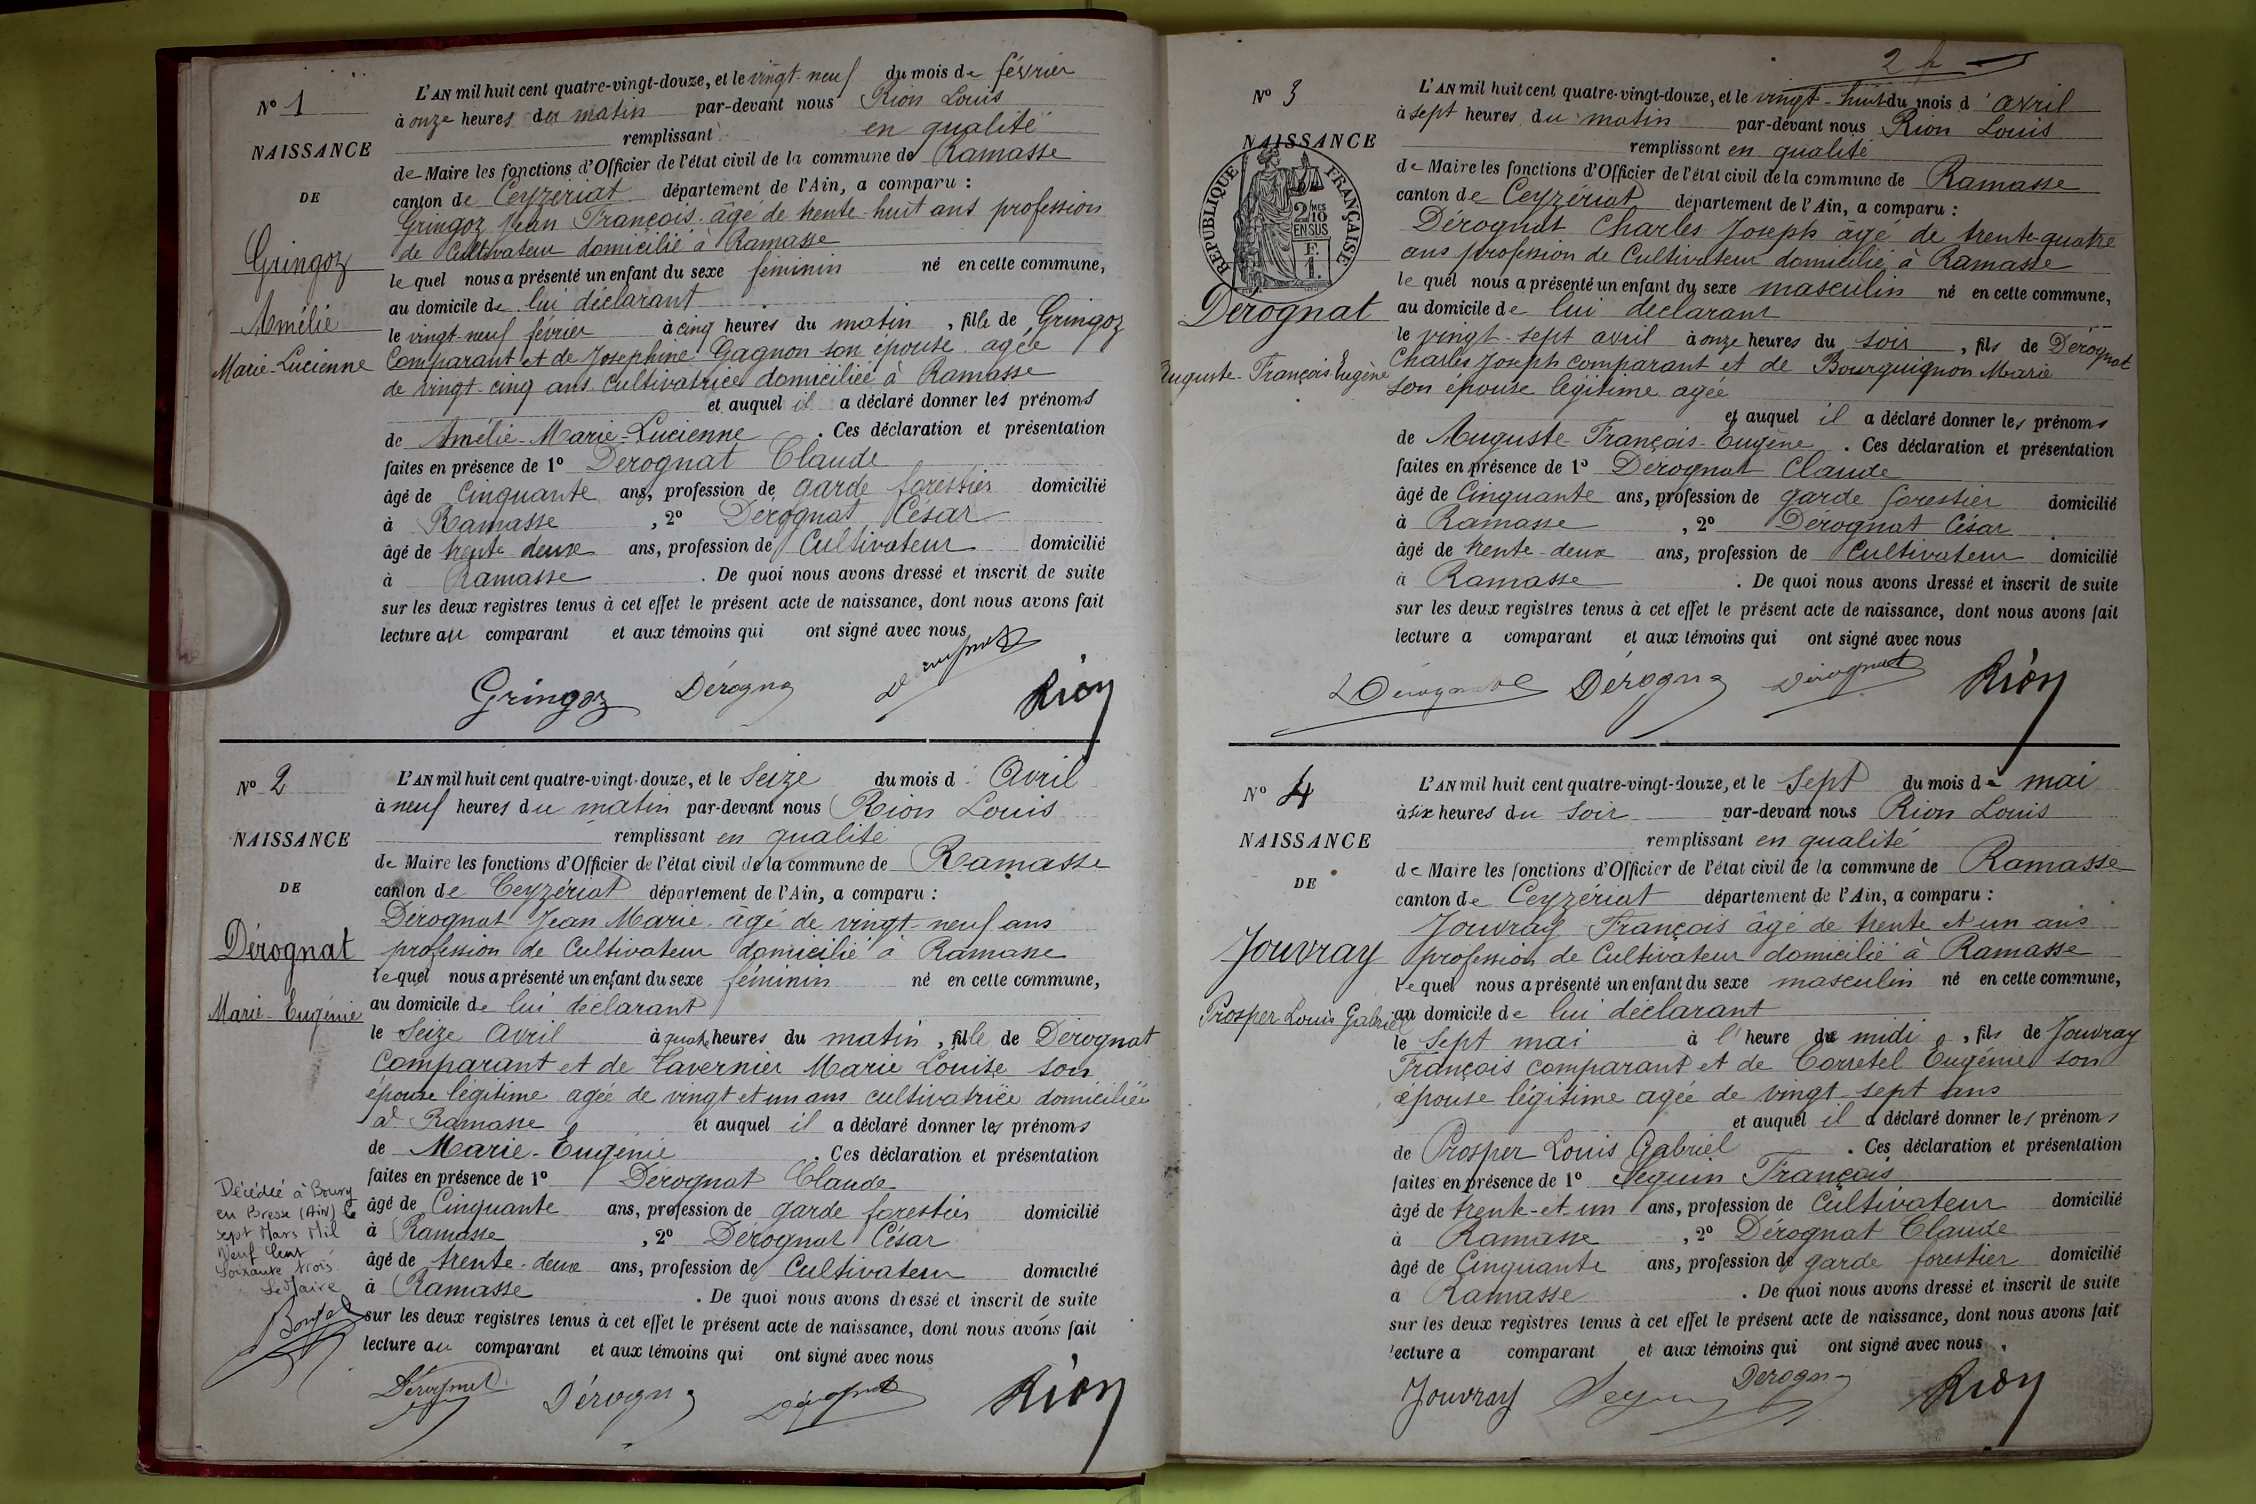 N° 1
NAISSANCE
DE
Gringoz
Amélie
Marie-Lucienne
L'AN mil huit cent quatre-vingt-douze, et le vingt-neuf du mois de février
à onze heures du matin par-devant nous Rion Louis
remplissant en qualité
de Maire les fonctions d'Officier de l'état civil de la commune de Ramasse
canton de Ceyzériat département de l'Ain, a comparu :
Gringoz Jean François âgé de trente-huit ans profession
de Cultivateur domicilié à Ramasse
le quel nous a présenté un enfant du sexe féminin né en cette commune,
au domicile de lui déclarant
le vingt-neuf février à cinq heures du matin, fille de Gringoz
Comparant et de Josephine Gagnon son épouse agée
de vingt-cinq ans cultivatrice domiciliée à Ramasse
et auquel il a déclaré donner les prénoms
de Amélie-Marie-Lucienne. Ces déclaration et présentation
faites en présence de 1° Dérognat Claude
âgé de Cinquante ans, profession de garde forestier domicilié
à Ramasse, 2° Dérognat César
âgé de trente deux ans, profession de Cultivateur domicilié
à Ramasse. De quoi nous avons dressé et inscrit de suite
sur les deux registres tenus à cet effet le présent acte de naissance, dont nous avons fait
lecture au comparant et aux témoins qui ont signé avec nous
Gringoz Dérogna Dérognat Rion
N° 2
NAISSANCE
DE
Dérognat
Marie-Eugénie
L'AN mil huit cent quatre-vingt-douze, et le Seize du mois d'Avril
à neuf heures du matin par-devant nous Rion Louis
remplissant en qualité
de Maire les fonctions d'Officier de l'état civil de la commune de Ramasse
canton de Ceyzériat département de l'Ain, a comparu :
Dérognat Jean Marie âgé de vingt-neuf ans
profession de Cultivateur domicilié à Ramasse
le quel nous a présenté un enfant du sexe féminin né en cette commune,
au domicile de lui déclarant
le Seize Avril à quatre heures du matin, fille de Dérognat
Comparant et de Tavernier Marie Louise son
épouse légitime agée de vingt et un ans cultivatrice domiciliée
à Ramasse et auquel il a déclaré donner les prénoms
de Marie-Eugénie. Ces déclaration et présentation
faites en présence de 1° Dérognat Claude
âgé de Cinquante ans, profession de garde forestier domicilié
à Ramasse, 2° Dérognat César
âgé de trente-deux ans, profession de Cultivateur domicilié
à Ramasse. De quoi nous avons dressé et inscrit de suite
sur les deux registres tenus à cet effet le présent acte de naissance, dont nous avons fait
lecture au comparant et aux témoins qui ont signé avec nous
Décédée à Bourg
en Bresse (Ain) le
sept Mars Mil
Neuf Cent
Soixante trois
Le Maire
Dérognat Dérogna Dérognat Rion
2 f
N° 3
NAISSANCE
RÉPUBLIQUE FRANÇAISE
2/10
EN SUS
F.
1.
Dérognat
Auguste-François Eugène
L'AN mil huit cent quatre-vingt-douze, et le vingt-huit du mois d'avril
à sept heures du matin par-devant nous Rion Louis
remplissant en qualité
de Maire les fonctions d'Officier de l'état civil de la commune de Ramasse
canton de Ceyzériat département de l'Ain, a comparu :
Dérognat Charles Joseph âgé de trente-quatre
ans profession de Cultivateur domicilié à Ramasse
le quel nous a présenté un enfant du sexe masculin né en cette commune,
au domicile de lui déclarant
le vingt-sept avril à onze heures du soir, fils de Dérognat
Charles Joseph comparant et de Bourguignon Marie
son épouse légitime agée
et auquel il a déclaré donner les prénoms
de Auguste-François-Eugène. Ces déclaration et présentation
faites en présence de 1° Dérognat Claude
âgé de Cinquante ans, profession de garde forestier domicilié
à Ramasse, 2° Dérognat César
âgé de trente-deux ans, profession de Cultivateur domicilié
à Ramasse. De quoi nous avons dressé et inscrit de suite
sur les deux registres tenus à cet effet le présent acte de naissance, dont nous avons fait
lecture a comparant et aux témoins qui ont signé avec nous
Dérognat Dérogna Dérognat Rion
N° 4
NAISSANCE
DE
Jouvray
Prosper Louis Gabriel
L'AN mil huit cent quatre-vingt-douze, et le Sept du mois de mai
à six heures du soir par-devant nous Rion Louis
remplissant en qualité
de Maire les fonctions d'Officier de l'état civil de la commune de Ramasse
canton de Ceyzériat département de l'Ain, a comparu :
Jouvray François âgé de trente et un ans
profession de Cultivateur domicilié à Ramasse
le quel nous a présenté un enfant du sexe masculin né en cette commune,
au domicile de lui déclarant
le sept mai à l'heure de midi, fils de Jouvray
François comparant et de Corretel Eugénie son
épouse légitime agée de vingt-sept ans
et auquel il a déclaré donner les prénoms
de Prosper Louis Gabriel. Ces déclaration et présentation
faites en présence de 1° Séguin François
âgé de trente-et-un ans, profession de Cultivateur domicilié
à Ramasse, 2° Dérognat Claude
âgé de Cinquante ans, profession de garde forestier domicilié
a Ramasse. De quoi nous avons dressé et inscrit de suite
sur les deux registres tenus à cet effet le présent acte de naissance, dont nous avons fait
lecture a comparant et aux témoins qui ont signé avec nous
Jouvray Seguin Dérogna Rion